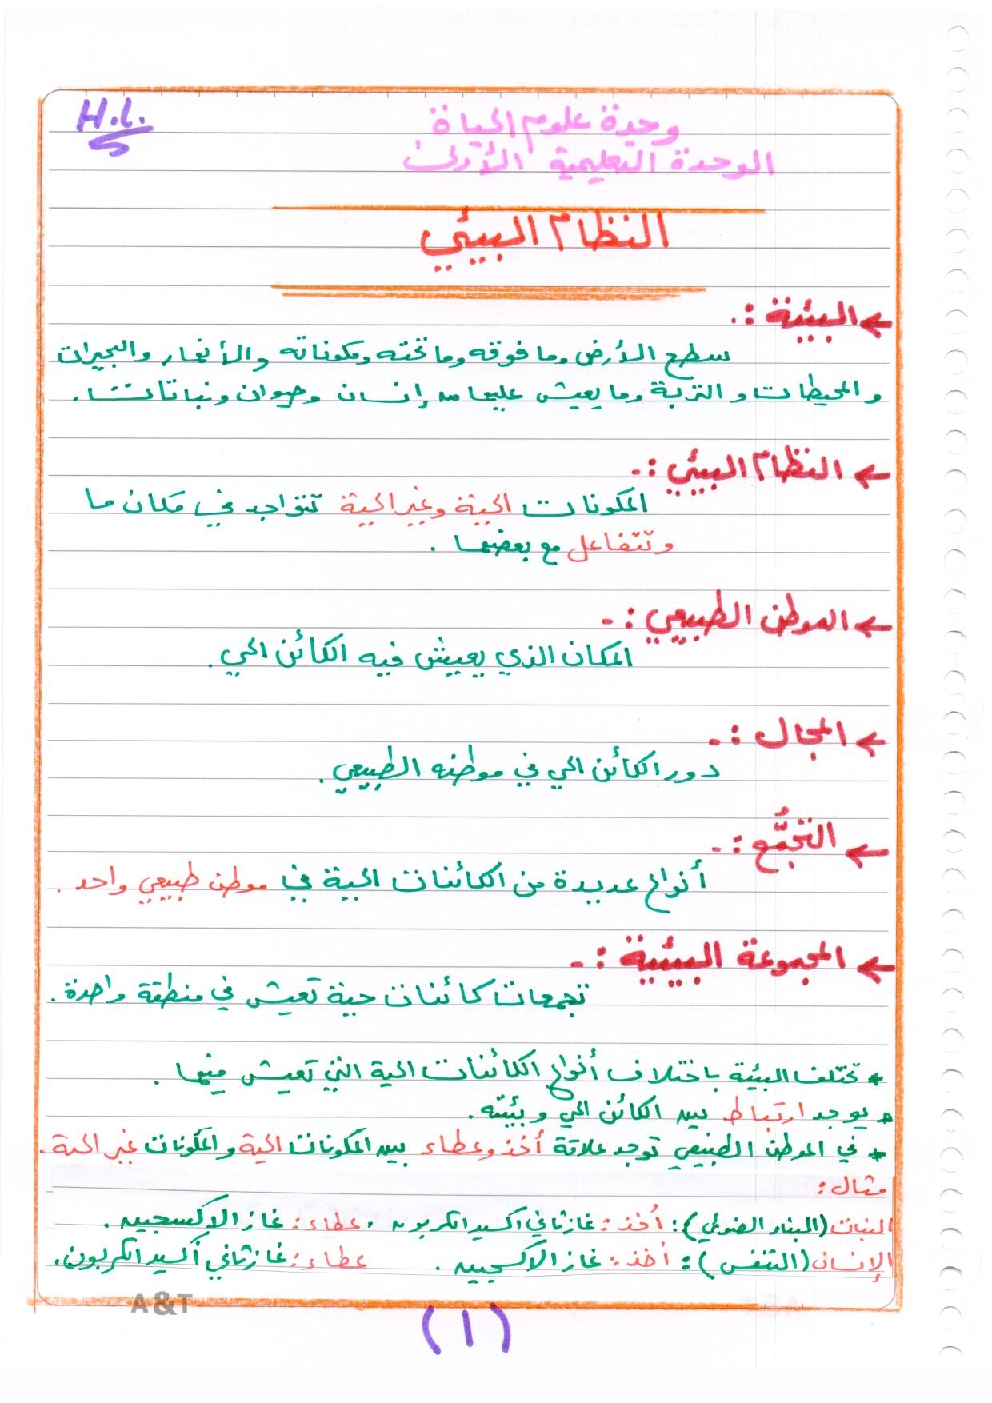 H.L.
وحدة علوم الحياة
الوحدة التعليمية الأولى
النظام البيئي
← البيئة :.
سطح الأرض وما فوقه وما تحته ومكوناته والأنهار والبحيرات
والمحيطات والتربة وما يعيش عليها من إنسان وحيوان ونباتات.
← النظام البيئي :.
المكونات الحية وغير الحية تتواجد في مكان ما
وتتفاعل مع بعضها .
← الموطن الطبيعي :.
المكان الذي يعيش فيه الكائن الحي .
← المجال :.
دور الكائن الحي في موطنه الطبيعي .
← التجمُّع :.
أنواع عديدة من الكائنات الحية في موطن طبيعي واحد .
← المجموعة البيئية :.
تجمعات كائنات حية تعيش في منطقة واحدة .
* تختلف البيئة باختلاف أنواع الكائنات الحية التي تعيش فيها .
* يوجد ارتباط بين الكائن الحي وبيئته .
* في الموطن الطبيعي توجد علاقة أخذ وعطاء بين المكونات الحية والمكونات غير الحية .
مثال :
النبات (البناء الضوئي) : أخذ : غاز ثاني اكسيد الكربون . عطاء : غاز الاكسجين .
الإنسان (التنفس) : أخذ : غاز الاكسجين . عطاء : غاز ثاني أكسيد الكربون .
A&T
(١)